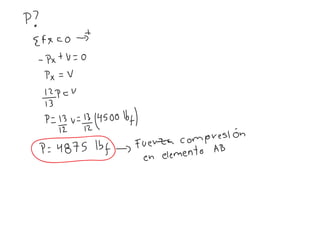 P?
ΣFx=0 →+
-Px+V=0
Px=V
12/13 P=V
P=13/12 V=13/12 (4500 lbf)
P=4875 lbf → Fuerza compresión
en elemento AB